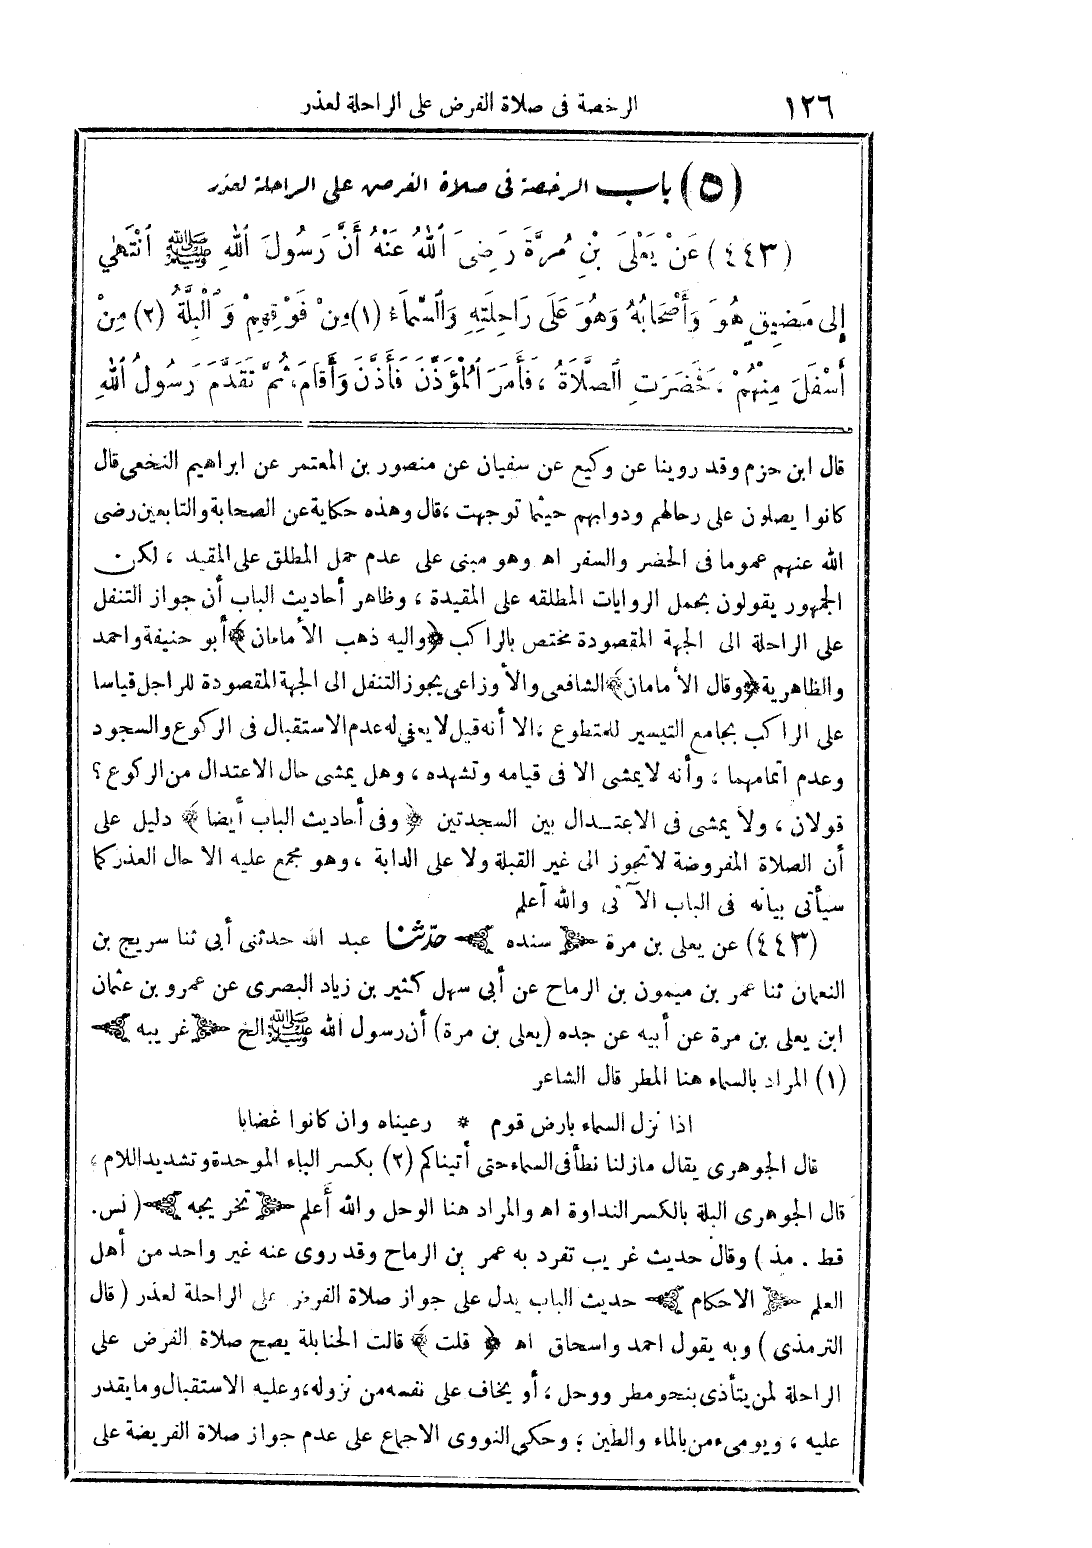 ١٢٦ الرخصة فى صلاة الفرض على الراحلة لعذر
(٥) باب الرخصة فى صلاة الفرض على الراحلة لعذر
(٤٤٣) عَنْ يَعْلَى بْنِ مُرَّةَ رَضِىَ ٱللهُ عَنْهُ أَنَّ رَسُولَ ٱللهِ ﷺ ٱنْتَهَى
إِلى مَضِيقٍ هُوَ وَأَصْحَابُهُ وَهُوَ عَلَى رَاحِلَتِهِ وَٱلسَّمَاءُ (١) مِنْ فَوْقِهِمْ وَٱلْبِلَّةُ (٢) مِنْ
أَسْفَلَ مِنْهُمْ ، فَحَضَرَتِ ٱلصَّلَاةُ ، فَأَمَرَ ٱلْمُؤَذِّنَ فَأَذَّنَ وَأَقَامَ، ثُمَّ تَقَدَّمَ رَسُولُ ٱللهِ
قال ابن حزم وقد روينا عن وكيع عن سفيان عن منصور بن المعتمر عن ابراهيم النخعى قال
كانوا يصلون على رحالهم ودوابهم حيثما توجهت ،قال وهذه حكاية عن الصحابة والتابعين رضى
الله عنهم عموما فى الحضر والسفر اه وهو مبنى على عدم حمل المطلق على المقيد ، لكن
الجمهور يقولون بحمل الروايات المطلقه على المقيدة ، وظاهر أحاديث الباب أن جواز التنفل
على الراحلة الى الجهة المقصودة مختص بالراكب ﴿واليه ذهب الأمامان﴾ أبو حنيفة واحمد
والظاهرية ﴿وقال الأمامان﴾ الشافعى والأوزاعى يجوز التنفل الى الجهة المقصودة للراجل قياسا
على الراكب بجامع التيسير للمتطوع ،الا أنه قيل لا يعفى له عدم الاستقبال فى الركوع والسجود
وعدم اتمامهما ، وأنه لا يمشى الا فى قيامه وتشهده ، وهل يمشى حال الاعتدال من الركوع ؟
قولان ، ولا يمشى فى الاعتـدال بين السجدتين ﴿ وفى أحاديث الباب أيضا ﴾ دليل على
أن الصلاة المفروضة لا تجوز الى غير القبلة ولا على الدابة ، وهو مجمع عليه الا حال العذر كما
سيأتى بيانه فى الباب الآتى والله أعلم
(٤٤٣) عن يعلى بن مرة ﴿ سنده ﴾ حدثنا عبد الله حدثنى أبى ثنا سريج بن
النعمان ثنا عمر بن ميمون بن الرماح عن أبى سهل كثير بن زياد البصرى عن عمرو بن عثمان
ابن يعلى بن مرة عن أبيه عن جده (يعلى بن مرة) أن رسول الله ﷺ الخ ﴿ غريبه ﴾
(١) المراد بالسماء هنا المطر قال الشاعر
اذا نزل السماء بارض قوم * رعيناه وان كانوا غضابا
قال الجوهرى يقال مازلنا نطأ فى السماء حتى أتيناكم (٢) بكسر الباء الموحدة وتشديد اللام ،
قال الجوهرى البلة بالكسر النداوة اه والمراد هنا الوحل والله أعلم ﴿ تخريجه ﴾ (نس.
قط . مذ ) وقال حديث غريب تفرد به عمر بن الرماح وقد روى عنه غير واحد من أهل
العلم ﴿ الاحكام ﴾ حديث الباب يدل على جواز صلاة الفرض على الراحلة لعذر ( قال
الترمذى ) وبه يقول احمد واسحاق اه ﴿ قلت ﴾ قالت الحنابلة يصح صلاة الفرض على
الراحلة لمن يتأذى بنحو مطر ووحل ، أو يخاف على نفسه من نزوله، وعليه الاستقبال وما يقدر
عليه ، ويومىء من بالماء والطين ؛ وحكى النووى الاجماع على عدم جواز صلاة الفريضة على